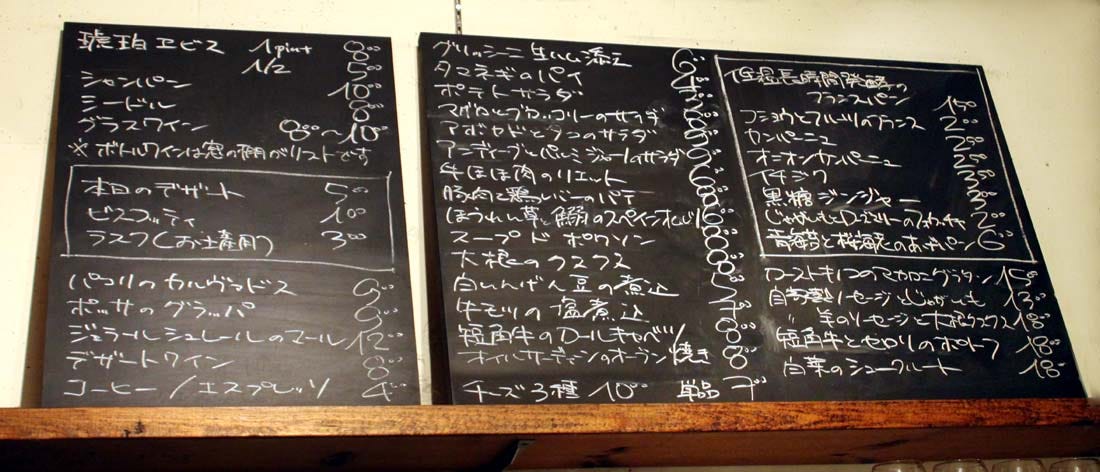 琥珀ヱビス 1pint 8°°
1/2 5°°
シャンパン 10°°
シードル 8°°
グラスワイン 8°°〜10°°
※ボトルワインは窓の棚がリストです
本日のデザート 5°°
ビスコッティ 1°°
ラスク(お土産用) 3°°
パコリのカルヴァドス 9°°
ポッサのグラッパ 9°°
ジェラールシュレールのマール 12°°
デザートワイン 8°°
コーヒー/エスプレッソ 4°°
グリッシーニ 生ハム添え 6°°
タマネギのパイ
ポテトサラダ
マグロとブロッコリーのサラダ
アボカドとタコのサラダ
アンディーブとパルミジャーノのサラダ
牛ほほ肉のリエット
豚肉と鶏レバーのパテ
ほうれん草と鰯のスペインオムレツ
スープ ド ポワソン
大根のクスクス
白いんげん豆の煮込
牛モツの塩煮込
短角牛のロールキャベツ 8°°
オイルサーディンのオーブン焼き 8°°
チーズ3種 10°° 単品 4°°
低温長時間発酵の
フランスパン 150
フランス 200
カンパーニュ
オニオンカンパーニュ
イチジク
黒糖ジンジャー
じゃがいもとローズマリーのフォカッチャ 2°°
青海苔と桜海老のおやきパン 6°°
ローストキノコのマカロニグラタン 15°°
自家製ソーセージとじゃがいも 13°°
〃 羊のソーセージと大根クスクス 18°°
短角牛とセロリのポトフ 18°°
白菜のシュークルート 18°°